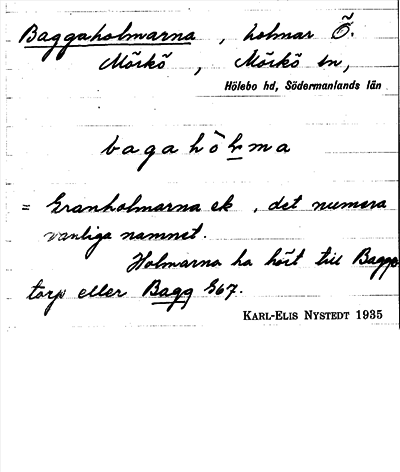 Baggaholmarna, holmar Ö.
Mörkö, Mörkö sn,
Hölebo hd, Södermanlands län
bagahòlma
= Granholmarna ek, det numera
vanliga namnet.
Holmarna ha hört till Bagga-
torp eller Bagg
KARL-ELIS NYSTEDT 1935